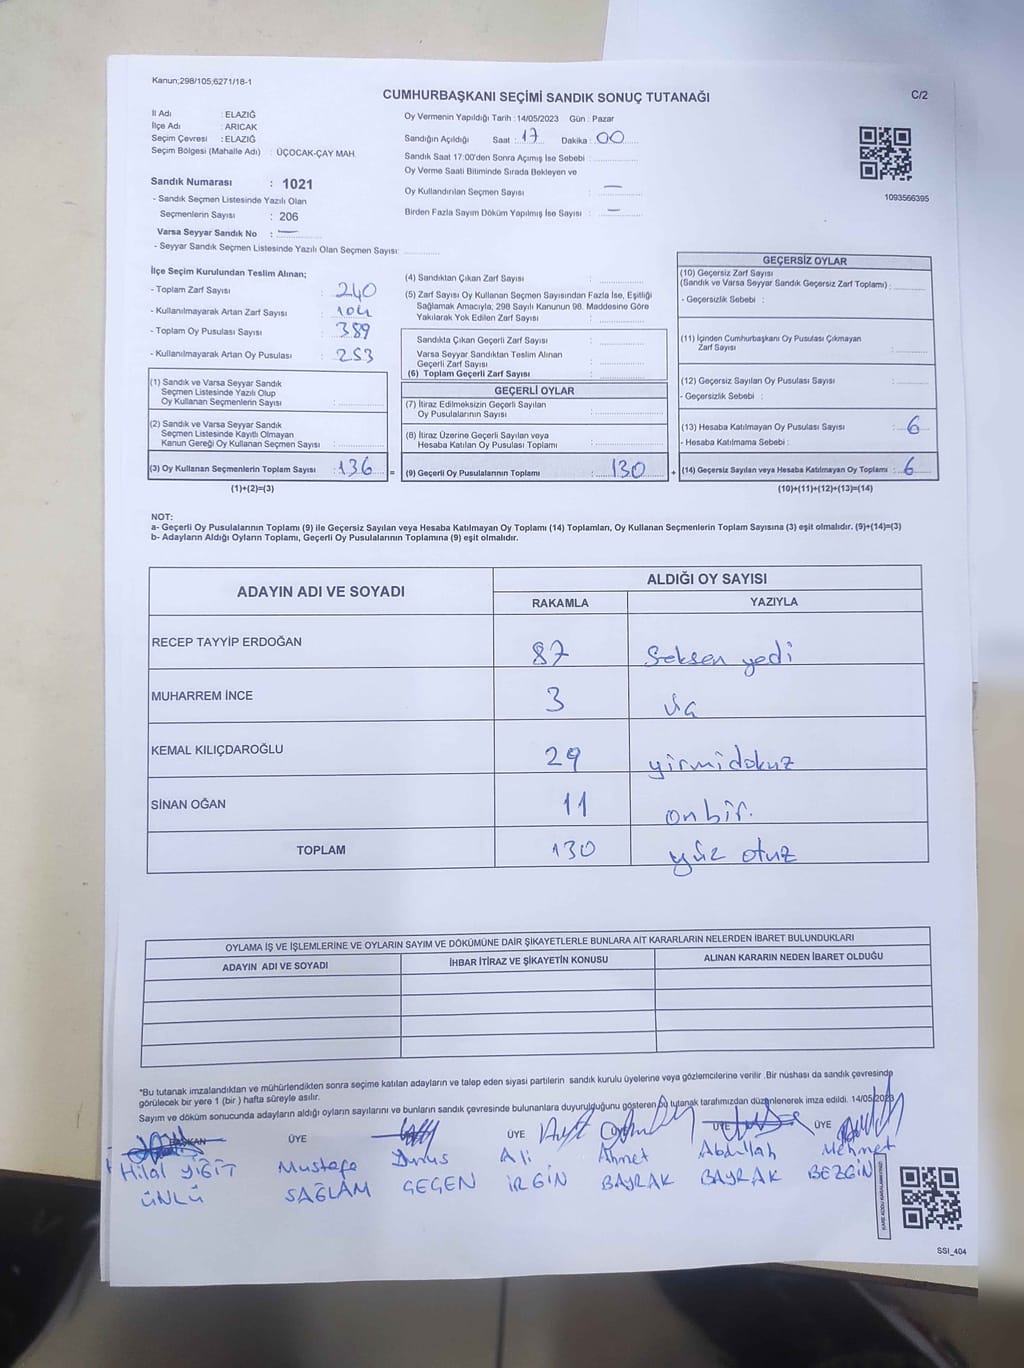 Kanun;298/105;6271/18-1
CUMHURBAŞKANI SEÇİMİ SANDIK SONUÇ TUTANAĞI
C/2
İl Adı : ELAZIĞ
İlçe Adı : ARICAK
Seçim Çevresi : ELAZIĞ
Seçim Bölgesi (Mahalle Adı) : ÜÇOCAK-ÇAY MAH.
Sandık Numarası : 1021
- Sandık Seçmen Listesinde Yazılı Olan
Seçmenlerin Sayısı : 206
Varsa Seyyar Sandık No : —
- Seyyar Sandık Seçmen Listesinde Yazılı Olan Seçmen Sayısı:
Oy Vermenin Yapıldığı Tarih : 14/05/2023 Gün : Pazar
Sandığın Açıldığı Saat : 17 Dakika : 00
Sandık Saat 17:00'den Sonra Açımış İse Sebebi :
Oy Verme Saati Bitiminde Sırada Bekleyen ve
Oy Kullandırılan Seçmen Sayısı : —
Birden Fazla Sayım Döküm Yapılmış İse Sayısı : —
1093566395
İlçe Seçim Kurulundan Teslim Alınan;
- Toplam Zarf Sayısı : 240
- Kullanılmayarak Artan Zarf Sayısı : 104
- Toplam Oy Pusulası Sayısı : 389
- Kullanılmayarak Artan Oy Pusulası : 253
(1) Sandık ve Varsa Seyyar Sandık
Seçmen Listesinde Yazılı Olup
Oy Kullanan Seçmenlerin Sayısı :
(2) Sandık ve Varsa Seyyar Sandık
Seçmen Listesinde Kayıtlı Olmayan
Kanun Gereği Oy Kullanan Seçmen Sayısı :
(3) Oy Kullanan Seçmenlerin Toplam Sayısı : 136 =
(1)+(2)=(3)
(4) Sandıktan Çıkan Zarf Sayısı :
(5) Zarf Sayısı Oy Kullanan Seçmen Sayısından Fazla İse, Eşitliği
Sağlamak Amacıyla, 298 Sayılı Kanunun 98. Maddesine Göre
Yakılarak Yok Edilen Zarf Sayısı :
Sandıkta Çıkan Geçerli Zarf Sayısı :
Varsa Seyyar Sandıktan Teslim Alınan
Geçerli Zarf Sayısı :
(6) Toplam Geçerli Zarf Sayısı :
GEÇERLİ OYLAR
(7) İtiraz Edilmeksizin Geçerli Sayılan
Oy Pusulalarının Sayısı :
(8) İtiraz Üzerine Geçerli Sayılan veya
Hesaba Katılan Oy Pusulası Toplamı :
(9) Geçerli Oy Pusulalarının Toplamı : 130 +
GEÇERSİZ OYLAR
(10) Geçersiz Zarf Sayısı
(Sandık ve Varsa Seyyar Sandık Geçersiz Zarf Toplamı) :
- Geçersizlik Sebebi :
(11) İçinden Cumhurbaşkanı Oy Pusulası Çıkmayan
Zarf Sayısı :
(12) Geçersiz Sayılan Oy Pusulası Sayısı :
- Geçersizlik Sebebi :
(13) Hesaba Katılmayan Oy Pusulası Sayısı : 6
- Hesaba Katılmama Sebebi :
(14) Geçersiz Sayılan veya Hesaba Katılmayan Oy Toplamı : 6
(10)+(11)+(12)+(13)=(14)
NOT:
a- Geçerli Oy Pusulalarının Toplamı (9) ile Geçersiz Sayılan veya Hesaba Katılmayan Oy Toplamı (14) Toplamları, Oy Kullanan Seçmenlerin Toplam Sayısına (3) eşit olmalıdır. (9)+(14)=(3)
b- Adayların Aldığı Oyların Toplamı, Geçerli Oy Pusulalarının Toplamına (9) eşit olmalıdır.
ADAYIN ADI VE SOYADI
ALDIĞI OY SAYISI
RAKAMLA YAZIYLA
RECEP TAYYİP ERDOĞAN 87 Seksen yedi
MUHARREM İNCE 3 üç
KEMAL KILIÇDAROĞLU 29 yirmidokuz
SİNAN OĞAN 11 onbir.
TOPLAM 130 yüz otuz
OYLAMA İŞ VE İŞLEMLERİNE VE OYLARIN SAYIM VE DÖKÜMÜNE DAİR ŞİKAYETLERLE BUNLARA AİT KARARLARIN NELERDEN İBARET BULUNDUKLARI
ADAYIN ADI VE SOYADI İHBAR İTİRAZ VE ŞİKAYETİN KONUSU ALINAN KARARIN NEDEN İBARET OLDUĞU
*Bu tutanak imzalandıktan ve mühürlendikten sonra seçime katılan adayların ve talep eden siyasi partilerin sandık kurulu üyelerine veya gözlemcilerine verilir .Bir nüshası da sandık çevresinde
görülecek bir yere 1 (bir ) hafta süreyle asılır.
Sayım ve döküm sonucunda adayların aldığı oyların sayılarını ve bunların sandık çevresinde bulunanlara duyurulduğunu gösteren bu tutanak tarafımızdan düzenlenerek imza edildi. 14/05/2023
BAŞKAN ÜYE ÜYE ÜYE ÜYE
Hilal YİĞİT Mustafa Durus Ali Ahmet Abdullah Mehmet
ÜNLÜ SAĞLAM GEGEN İRGİN BAYRAK BAYRAK BEZGİN
SSI_404